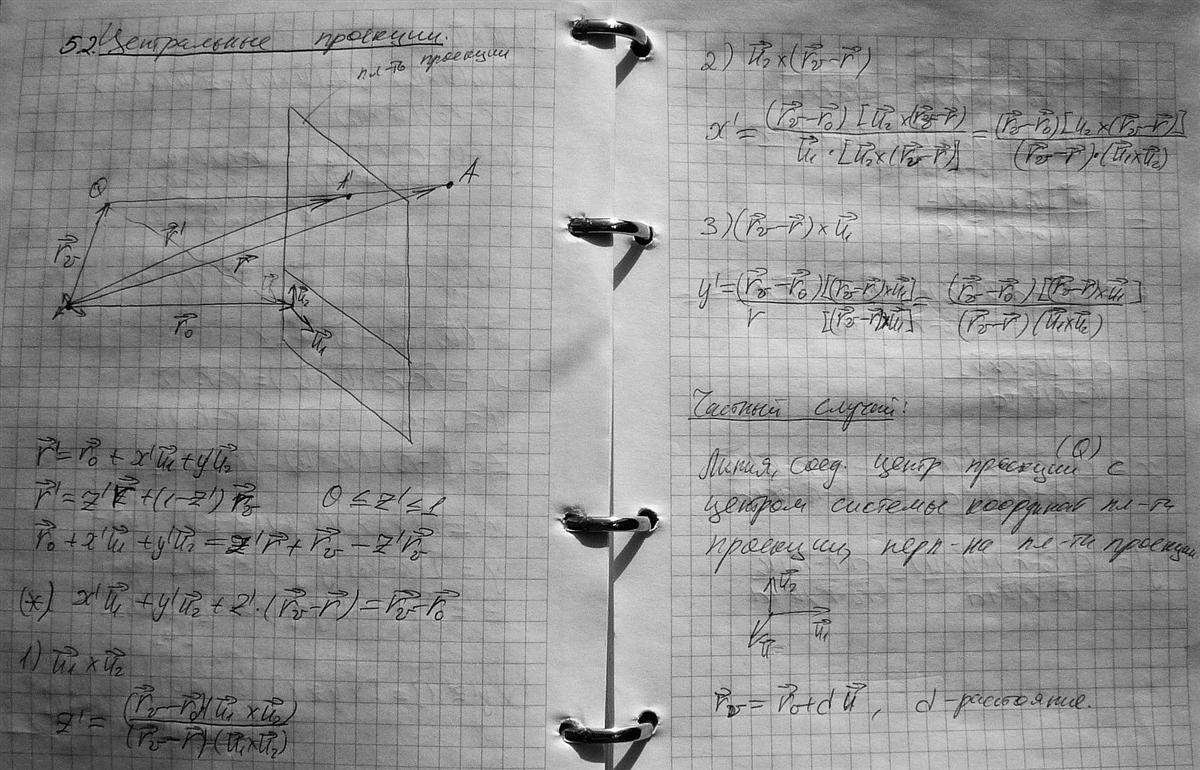 5.2. Центральные проекции.
пл-ть проекции
Q
A'
A
r⃗_v
r⃗'
r⃗
u⃗₂
r⃗₀
u⃗₁
r⃗' = r⃗₀ + x'u⃗₁ + y'u⃗₂
r⃗' = z'r⃗ + (1-z')r⃗_v 0 ≤ z' ≤ 1
r⃗₀ + x'u⃗₁ + y'u⃗₂ = z'r⃗ + r⃗_v - z'r⃗_v
(*) x'u⃗₁ + y'u⃗₂ + z'·(r⃗_v - r⃗) = r⃗_v - r⃗₀
1) u⃗₁ × u⃗₂
z' = (r⃗_v - r⃗₀)(u⃗₁ × u⃗₂) / (r⃗_v - r⃗)·(u⃗₁ × u⃗₂)
2) u⃗₂ × (r⃗_v - r⃗)
x' = (r⃗_v - r⃗₀)[u⃗₂ × (r⃗_v - r⃗) / u⃗₁·[u⃗₂ × (r⃗_v - r⃗] = (r⃗_v - r⃗₀)[u₂ × (r⃗_v - r⃗)] / (r⃗_v - r⃗)·(u⃗₁ × u⃗₂)
3) (r⃗_v - r⃗) × u⃗₁
y' = (r⃗_v - r⃗₀)[(r⃗_v - r⃗) × u⃗₁] / [(r⃗_v - r⃗) × u⃗₁] = (r⃗_v - r⃗₀)[(r⃗_v - r⃗) × u⃗₁] / (r⃗_v - r⃗)(u⃗₁ × u⃗₂)
Частный случай:
Линия, соед. центр проекции (Q) с
центром системы координат пл-ти
проекции, перп-на пл-ти проекции
u⃗₂
u⃗₁
u⃗
r⃗_v = r⃗₀ + d u⃗, d - растояние.